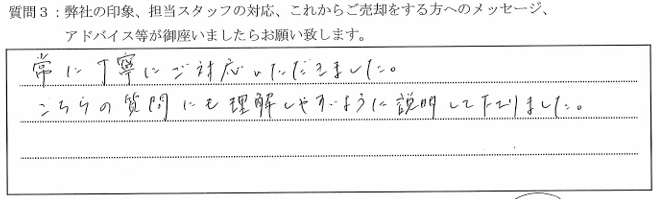 質問3：弊社の印象、担当スタッフの対応、これからご売却をする方へのメッセージ、
アドバイス等が御座いましたらお願い致します。
常に丁寧にご対応いただきました。
こちらの質問にも理解しやすいように説明して下さりました。